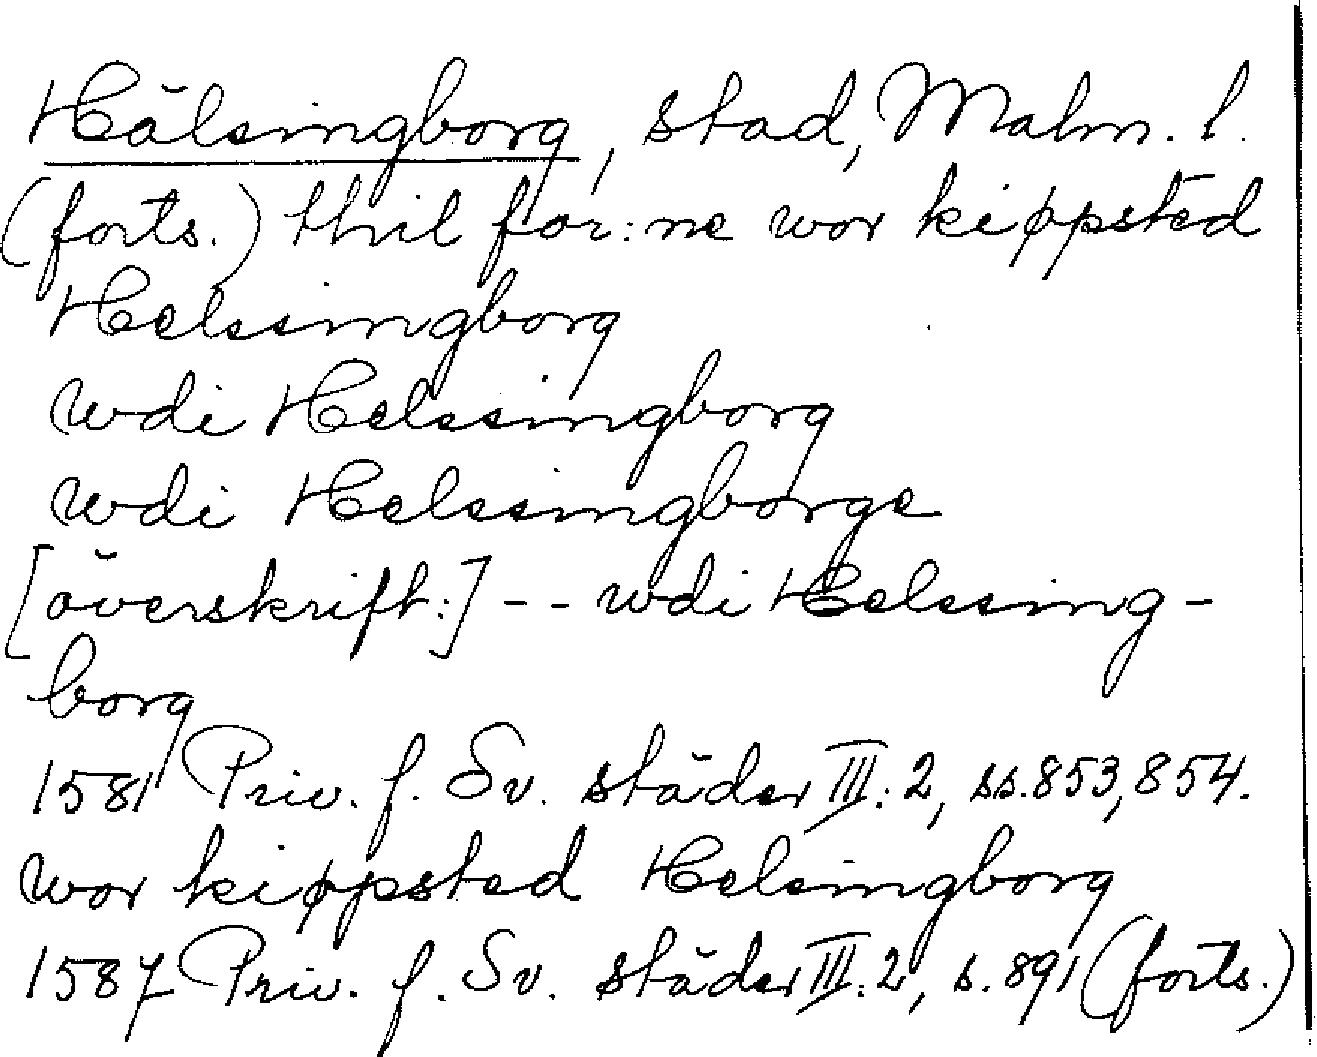 Hälsingborg, stad, Malm. l.
(forts.) thil for:ne wor kiøpsted
Helssingborg
wdi Helssingborg
wdi Helssingborge
[överskrift:] -- wdi Helssing-
borg
1581 Priv. f. Sv. städer III:2, ss. 853, 854.
wor kiøpsted Helsingborg
1587 Priv. f. Sv. städer III:2, s. 891 (forts.)